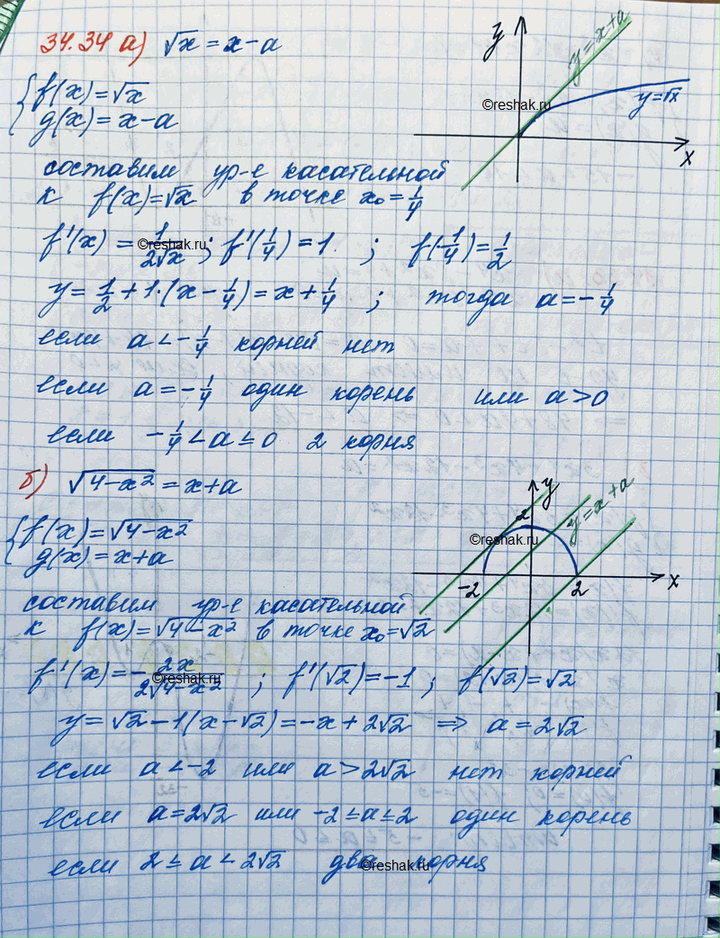 34.34 а) √x = x - a
y
y = x + a
{ f(x) = √x
g(x) = x - a
©reshak.ru
y = √x
x
составим ур-е касательной
к f(x) = √x в точке x₀ = 1/4
f'(x) = 1/(2√x) ; f'(1/4) = 1 ; f(1/4) = 1/2
©reshak.ru
y = 1/2 + 1·(x - 1/4) = x + 1/4 ; тогда a = -1/4
если a < -1/4 корней нет
если a = -1/4 один корень или a > 0
если -1/4 < a ≤ 0 2 корня
б) √(4-x²) = x + a
y
2
y = x + a
{ f(x) = √(4-x²)
g(x) = x + a
©reshak.ru
-2 2 x
составим ур-е касательной
к f(x) = √(4-x²) в точке x₀ = √2
f'(x) = - 2x/(2√(4-x²)) ; f'(√2) = -1 ; f(√2) = √2
©reshak.ru
y = √2 - 1(x - √2) = -x + 2√2 ⇒ a = 2√2
если a < -2 или a > 2√2 нет корней
если a = 2√2 или -2 ≤ a ≤ 2 один корень
если 2 ≤ a < 2√2 два корня
©reshak.ru